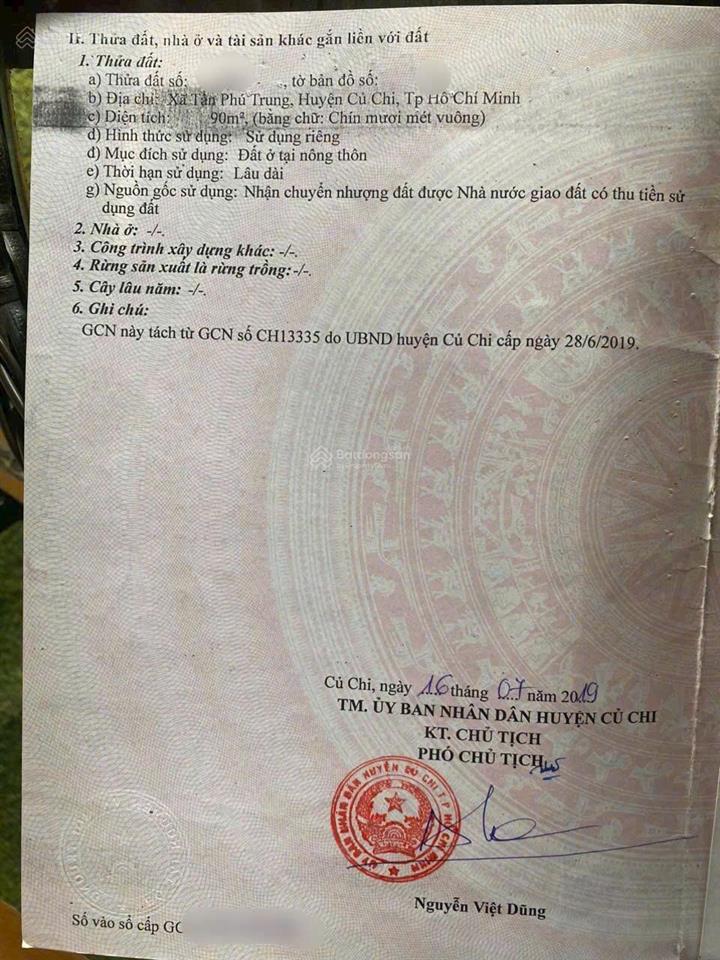 II. Thửa đất, nhà ở và tài sản khác gắn liền với đất
1. Thửa đất:
a) Thửa đất số: , tờ bản đồ số:
b) Địa chỉ: Xã Tân Phú Trung, Huyện Củ Chi, Tp Hồ Chí Minh
c) Diện tích: 90m², (bằng chữ: Chín mươi mét vuông)
d) Hình thức sử dụng: Sử dụng riêng
đ) Mục đích sử dụng: Đất ở tại nông thôn
e) Thời hạn sử dụng: Lâu dài
g) Nguồn gốc sử dụng: Nhận chuyển nhượng đất được Nhà nước giao đất có thu tiền sử
dụng đất
2. Nhà ở: -/-.
3. Công trình xây dựng khác: -/-.
4. Rừng sản xuất là rừng trồng: -/-.
5. Cây lâu năm: -/-.
6. Ghi chú:
GCN này tách từ GCN số CH13335 do UBND huyện Củ Chi cấp ngày 28/6/2019.
Batdongsan
Củ Chi, ngày 16 tháng 07 năm 2019
TM. ỦY BAN NHÂN DÂN HUYỆN CỦ CHI
KT. CHỦ TỊCH
PHÓ CHỦ TỊCH
ỦY BAN NHÂN DÂN HUYỆN CỦ CHI T.P HỒ CHÍ MINH
Nguyễn Việt Dũng
Số vào sổ cấp GC